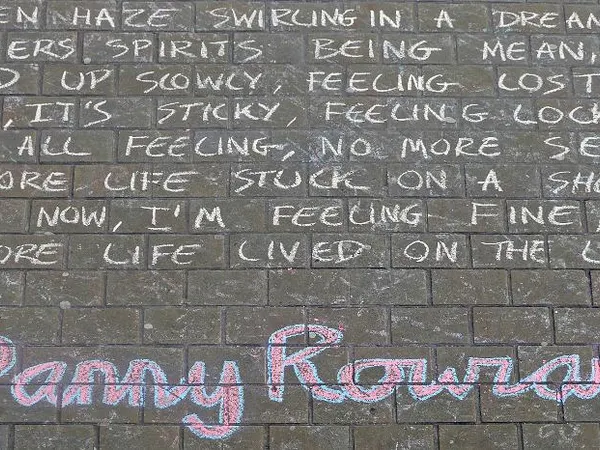 EN HAZE SWIRLING IN A DREAM
ERS SPIRITS BEING MEAN,
D UP SLOWLY, FEELING LOST
, IT'S STICKY, FEELING LOCK
ALL FEELING, NO MORE SE
ORE LIFE STUCK ON A SH
NOW, I'M FEELING FINE,
ORE LIFE LIVED ON THE L
Danny Rowan